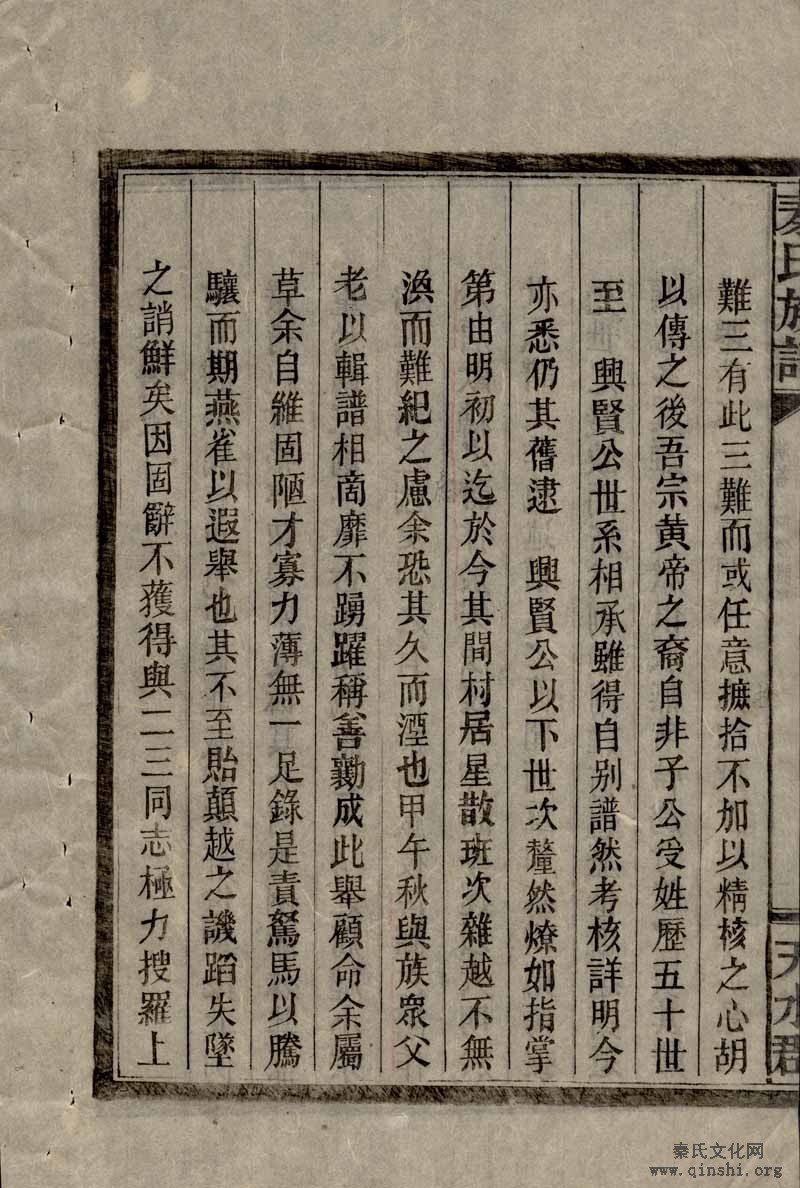 秦氏族譜
天水郡
難三有此三難而或任意摭拾不加以精核之心胡
以傳之後吾宗黃帝之裔自非子公受姓歷五十世
至　興賢公世系相承雖得自别譜然考核詳明今
亦悉仍其舊逮　興賢公以下世次釐然燎如指掌
第由明初以迄於今其間村居星散班次雜越不無
渙而難紀之慮余恐其久而湮也甲午秋與族衆父
老以輯譜相商靡不踴躍稱善勷成此舉顧命余屬
草余自維固陋才寡力薄無一足錄是責駑馬以騰
驤而期燕雀以遐舉也其不至貽顛越之譏蹈失墜
之誚鮮矣因固辭不獲得與二三同志極力搜羅上
秦氏文化网
www.qinshi.org